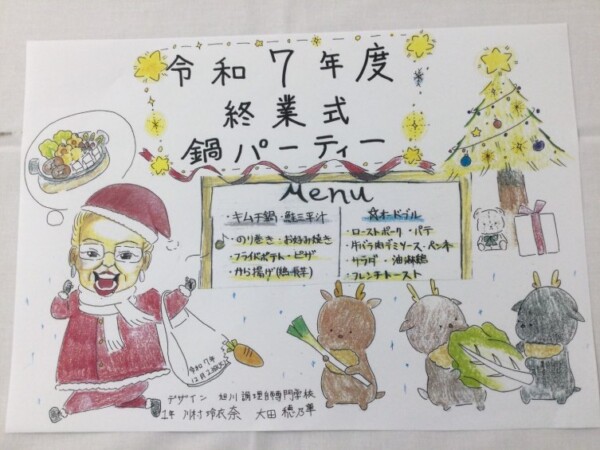 令和7年度
終業式
鍋パーティー
Menu
・キムチ鍋・鮭三平汁
・のり巻き・お好み焼き
・フライドポテト・ピザ
・から揚げ(鶏・長芋)
☆オードブル
・ローストポーク・パテ
・牛バラ肉デミソース・ペンネ
・サラダ・油淋鶏
・フレンチトースト
令和7年
デザイン 細川調理師専門学校
1年 川村玲衣奈 太田穂乃華